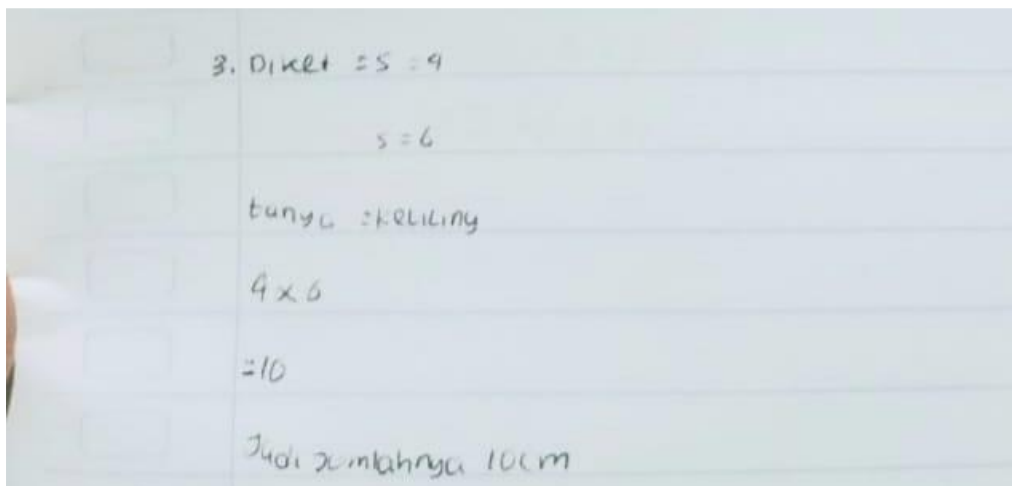 3. Diket = s = 4
s = 6
tanya = keliling
4 x 6
= 10
Jadi jumlahnya 10 cm